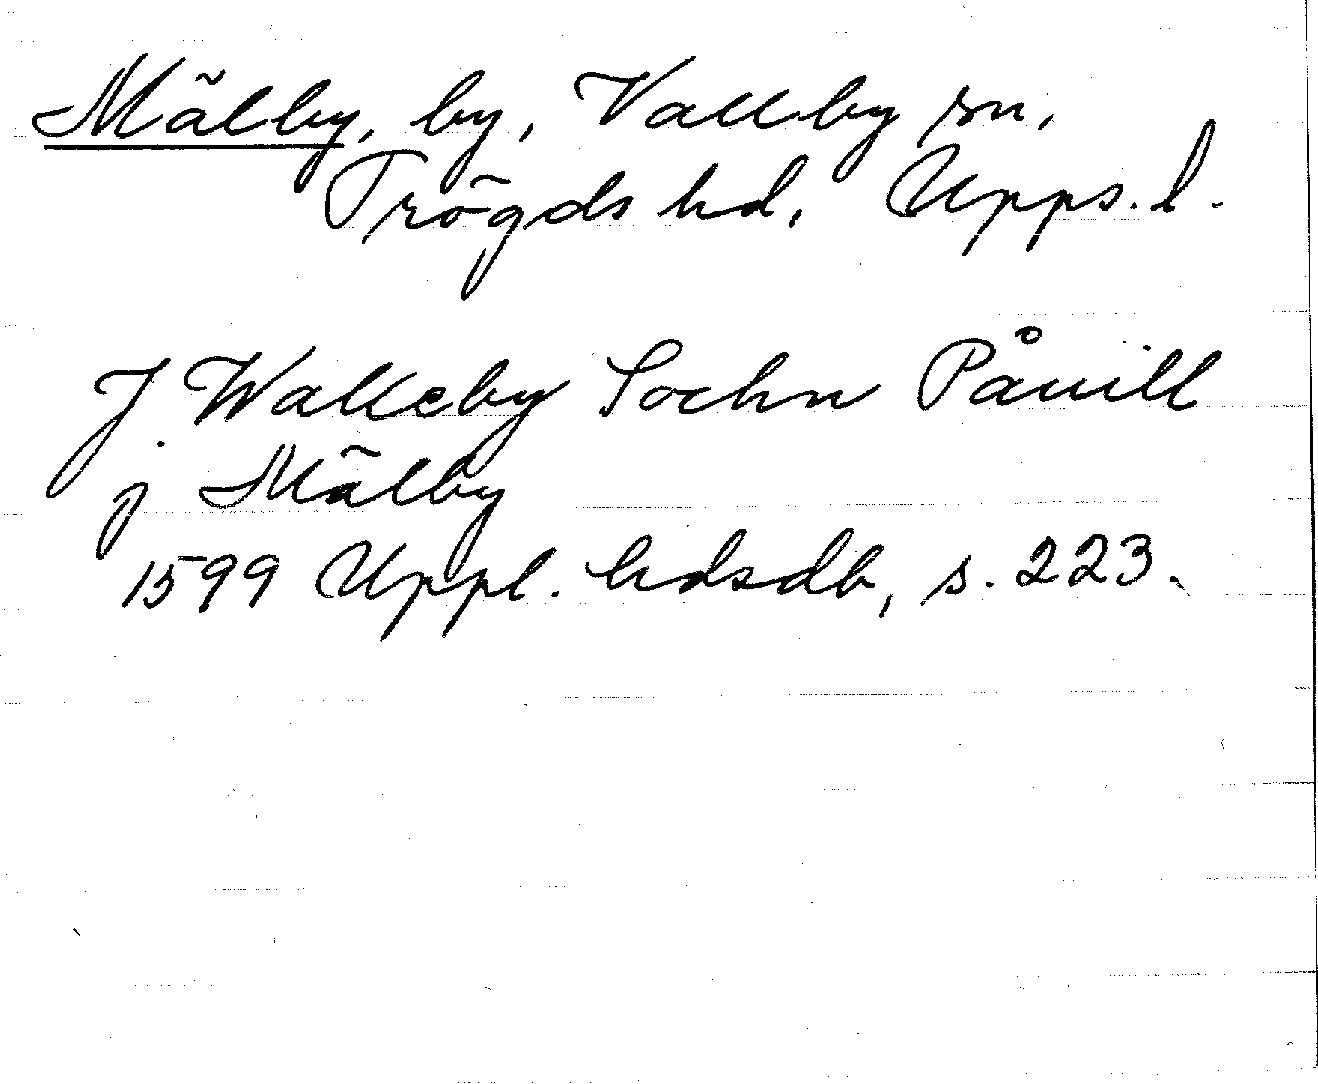 Mälby, by, Vallby sn,
Trögds hd, Upps. l.
J Walleby Sochn Påuill
j Mälby
1599 Uppl. hdsdb, s. 223.